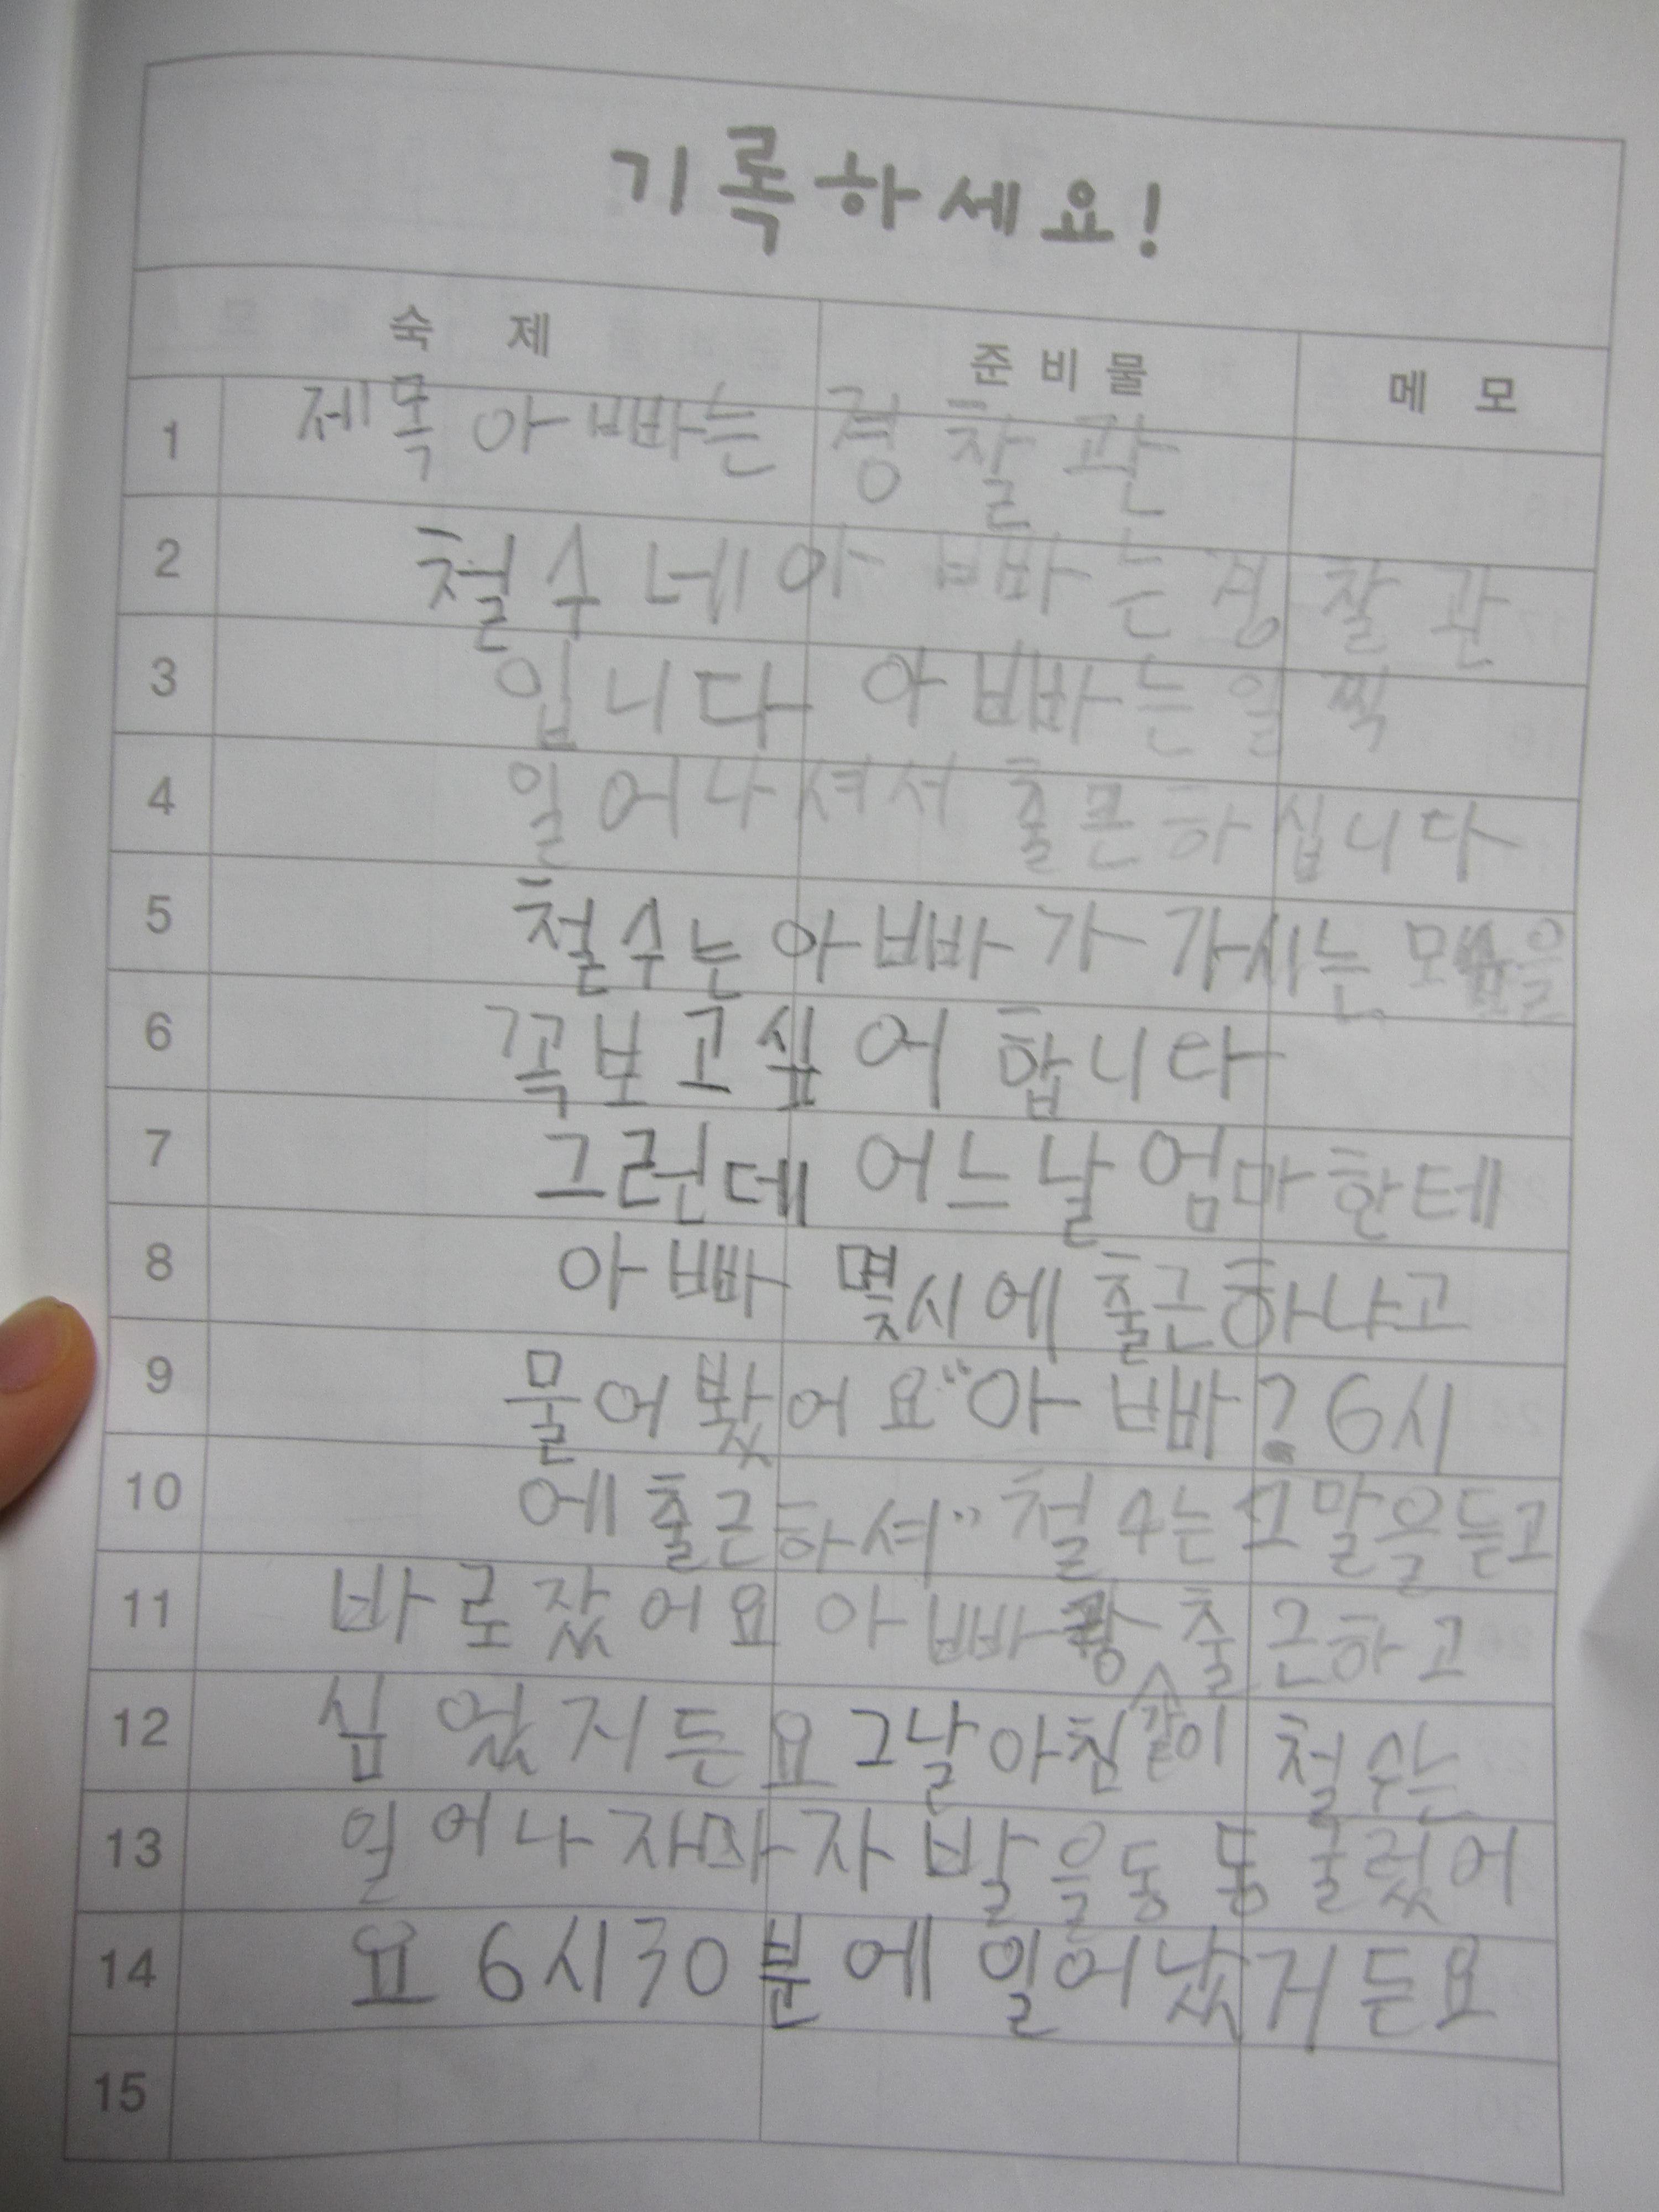 기록하세요!
숙 제 준 비 물 메 모
1 제목 아빠는 경찰관
2 철수네 아빠는 경찰관
3 입니다 아빠는 일찍
4 일어나셔서 출큰하십니다
5 철수는 아빠가 가시는 모습을
6 꼭보고싶어 합니다
7 그런데 어느날 엄마한테
8 아빠 몇시에 출근하냐고
9 물어봤어요 "아빠? 6시
10 에 출근하셔" 철수는 그말을듣고
11 바로잤어요 아빠랑 출근하고
12 십었지든요 그날아침 같이 철수는
13 일어나자마자 발을동동굴렀어
14 요 6시30분에 일어났거든요
15